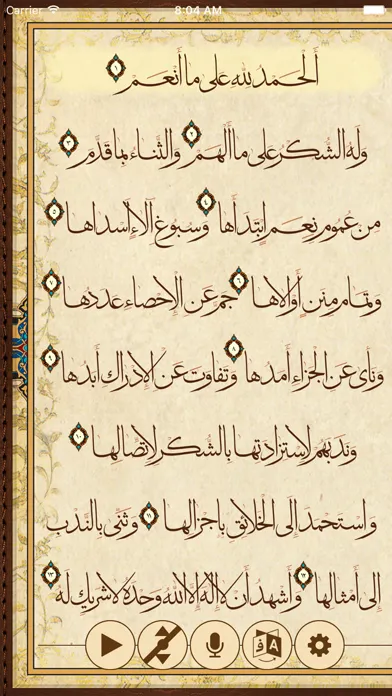 Carrier 8:04 AM
أَلْحَمْدُ لِلّٰهِ عَلى ما أَنْعَمَ ١
وَلَهُ الشُّكْرُ عَلى ما أَلْهَمَ ٢ وَالثَّناءُ بِما قَدَّمَ ٣
مِن عُمومِ نِعَمٍ اِبْتَدَأَها ٤ وَسُبوغِ آلاءٍ أَسْداها ٥
وَتَمامِ مِنَنٍ أَوْلاها ٦ جَمَّ عَنِ الْإِحْصاءِ عَدَدُها ٧
وَنَأى عَنِ الْجَزاءِ أَمَدُها ٨ وَتَفاوَتَ عَنِ الْإِدْراكِ أَبَدُها ٩
وَنَدَبَهُمْ لِاسْتِزادَتِها بِالشُّكْرِ لِاتِّصالِها ١٠
وَاسْتَحْمَدَ إِلَى الْخَلائِقِ بِإِجْزالِها ١١ وَثَنّى بِالنَّدْبِ
إِلى أَمْثالِها ١٢ وَأَشْهَدُ أَنْ لا إِلٰهَ إِلَّا اللّٰهُ وَحْدَهُ لا شَريكَ لَهُ ١٣
A ف